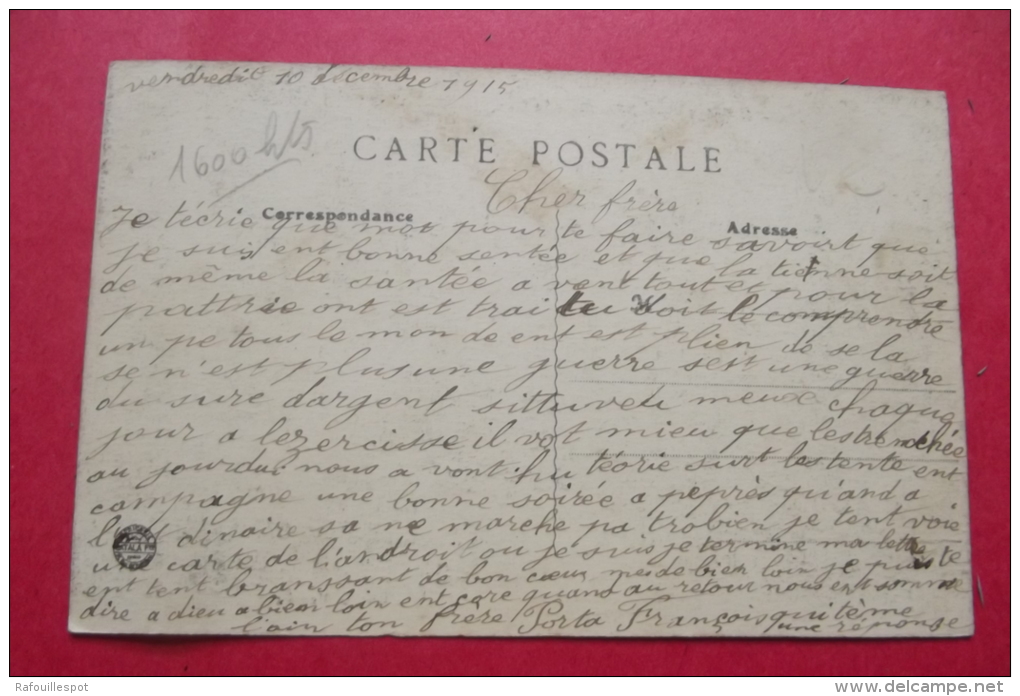 vendredi 10 decembre 1915
1600
CARTE POSTALE
Cher frère
Correspondance
Adresse
Je técrie que mot pour te faire savoirt que
je suis ent bonne sentée et que la tienne soit
de même la santée a vent tout et pour la
pattrie ont est trai tu doit le comprendre
un pe tous le monde ent est plien de se la
se n'est plus une guerre sest une guerre
du sure dargent sittuveu meux chaque
jour a lezercisse il vot mieu que les trenchée
au jourdui nous a vont hu téorie surt les tente ent
campagne une bonne soirée a peprès qu'and a
dinaire sa ne marche pa trobien je tent voie
une carte de l'androit ou je suis je termine ma lettre
ent tent branssant de bon cœur mes de bien loin je puis te
dire a dieu a bien loin ent core quand au retour nous ent somme
l'ain ton frère Porta François qui tème
une réponse
Rafouillespot
http://www.delcampe.net